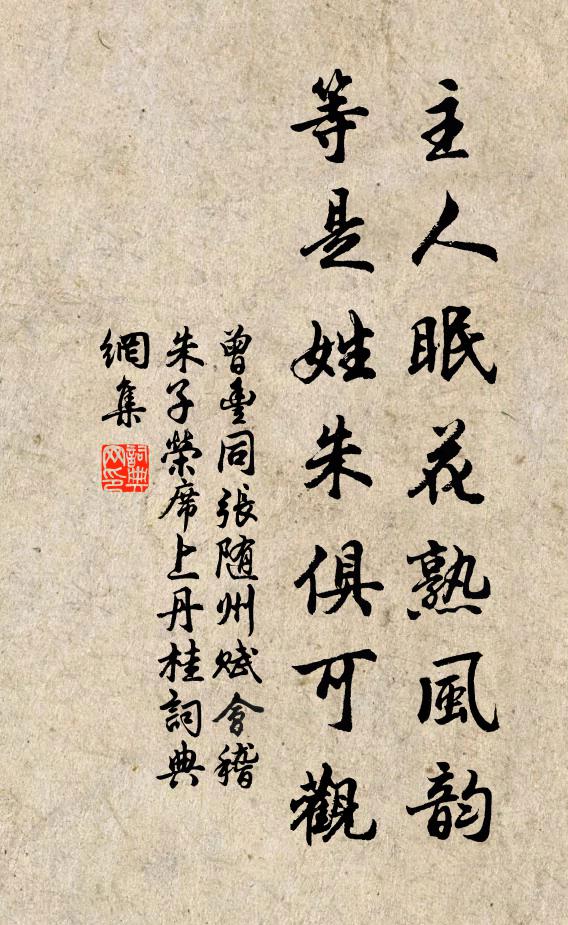 主人眠花熟風韵
等是姓朱俱可觀
曾豊同張随州赋會稽
朱子榮席上丹桂詞典
網集
詞典
网印